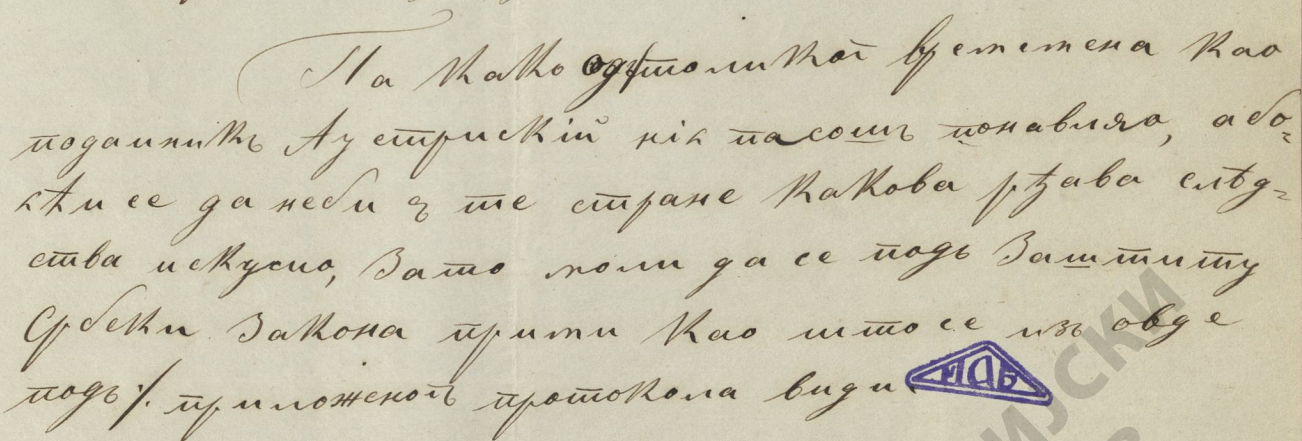 Па како одъ толикогъ времена као
поданикъ Аустрискій ніе пасошъ понављао, а бо-
ећи се да неби с те стране какова рђава слѣд-
ства искусио, зато моли да се подъ заштиту
Србски закона прими као што се изъ овде
подъ ·/. приложеногъ протокола види.
ИАБ
ИЈСКИ